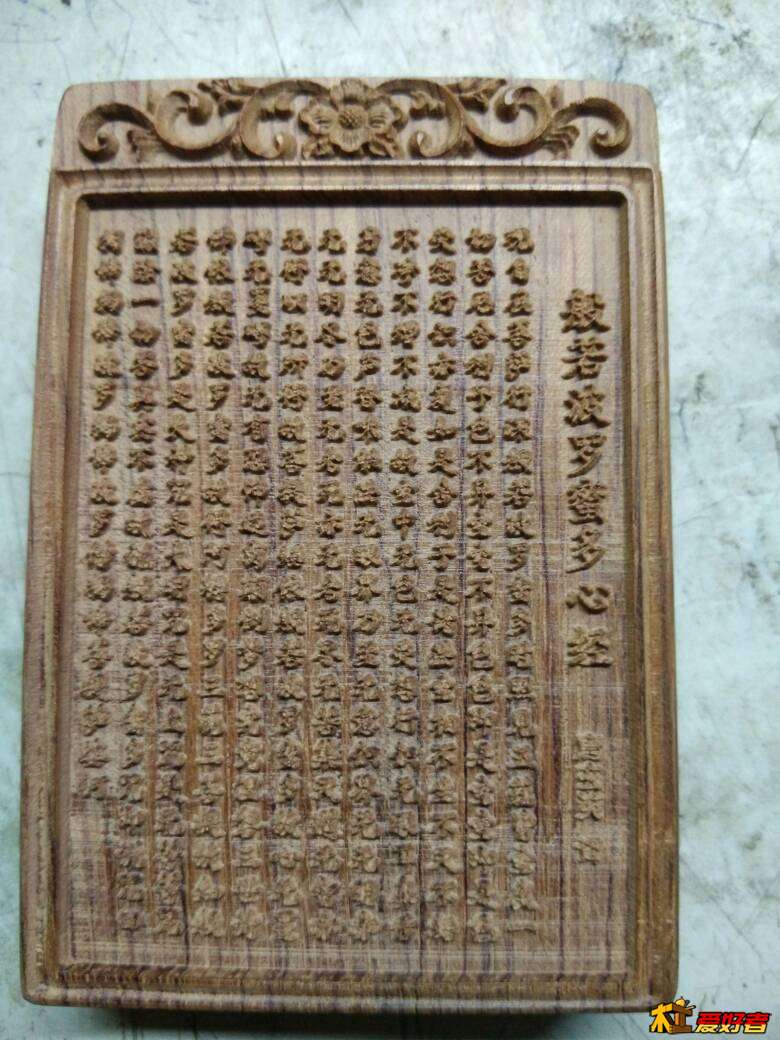 般若波罗蜜多心经
观自在菩萨行深般若波罗蜜多时照见五蕴皆空度一
切苦厄舍利子色不异空空不异色色即是空空即是色
受想行识亦复如是舍利子是诸法空相不生不灭不垢
不净不增不减是故空中无色无受想行识无眼耳鼻舌
身意无色声香味触法无眼界乃至无意识界无无明亦
无无明尽乃至无老死亦无老死尽无苦集灭道无智亦
无得以无所得故菩提萨埵依般若波罗蜜多故心无挂
碍无挂碍故无有恐怖远离颠倒梦想究竟涅槃三世诸
佛依般若波罗蜜多故得阿耨多罗三藐三菩提故知般
若波罗蜜多是大神咒是大明咒是无上咒是无等等咒
能除一切苦真实不虚故说般若波罗蜜多咒即说咒曰
揭谛揭谛波罗揭谛波罗僧揭谛菩提萨婆诃
爱好者